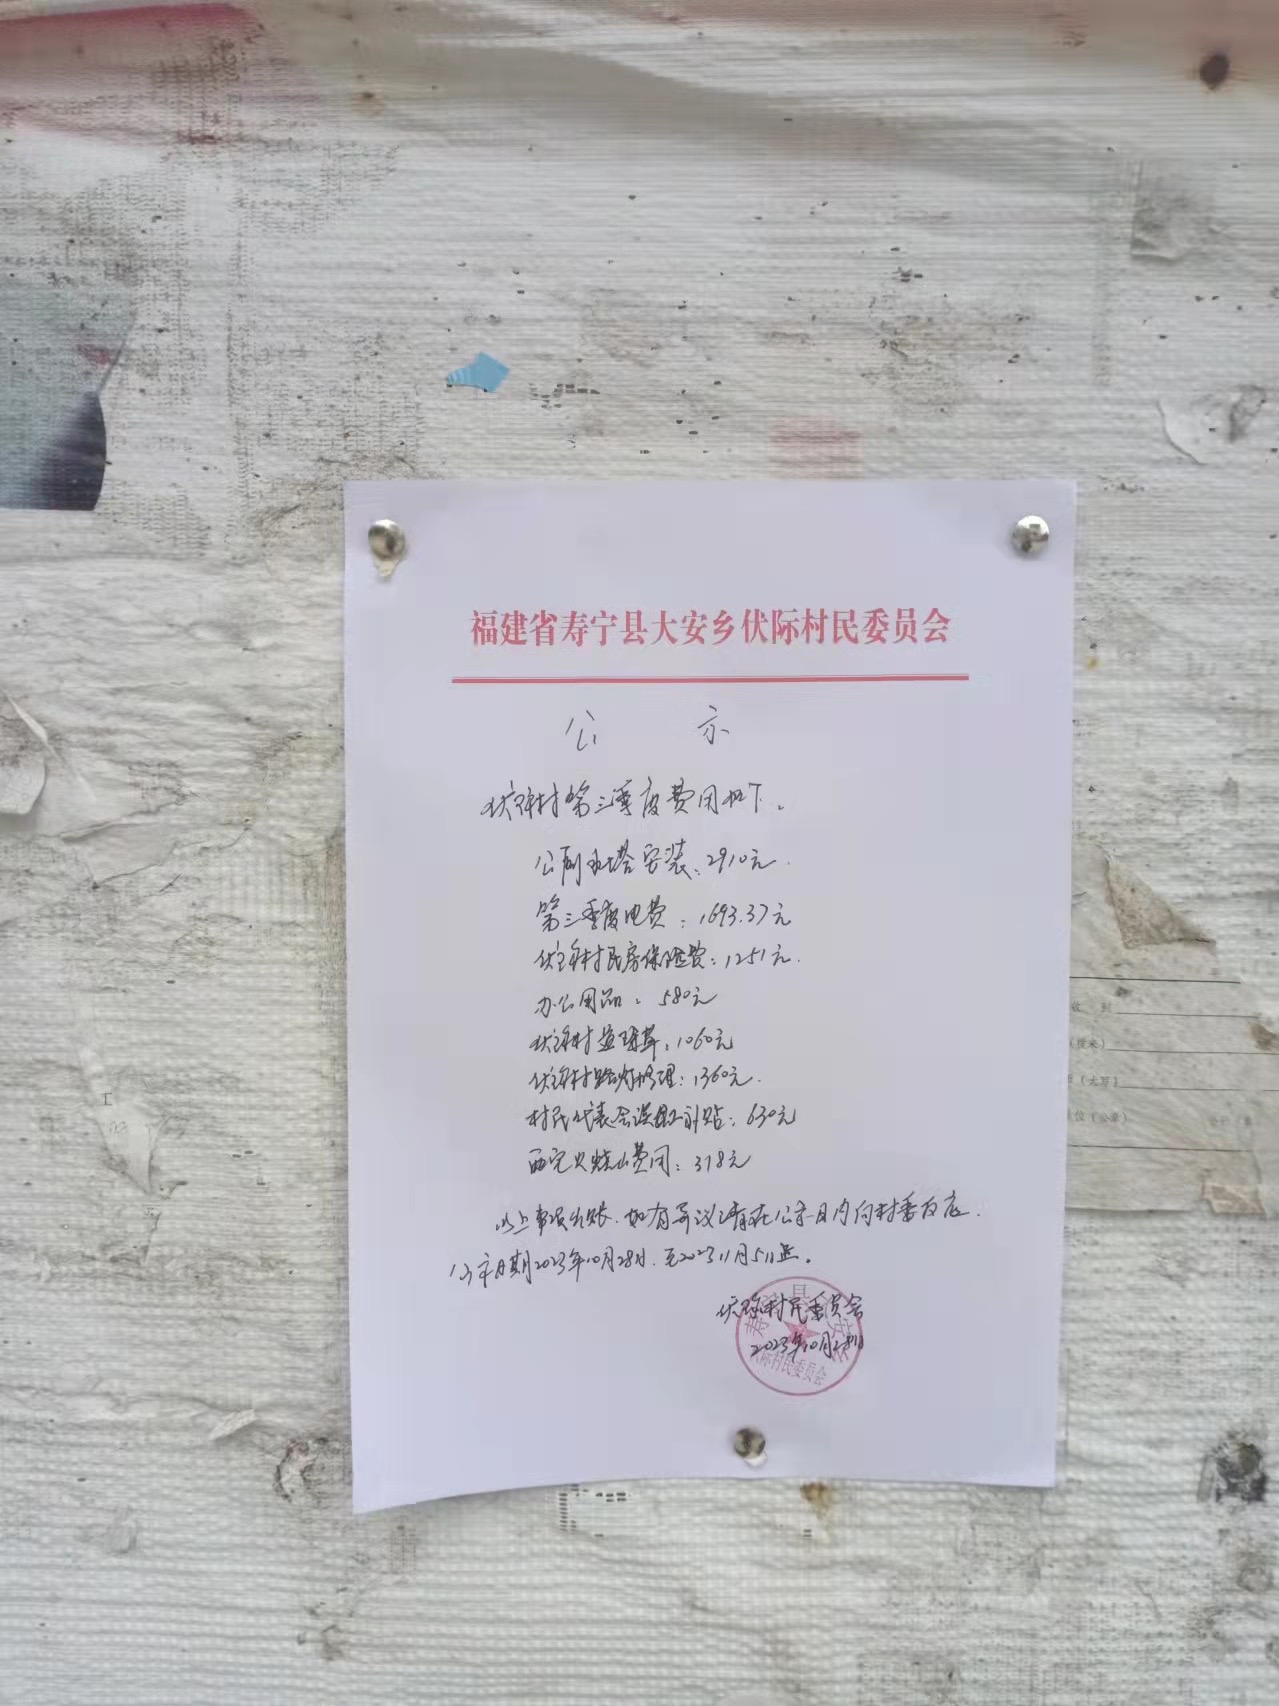 福建省寿宁县大安乡伏际村民委员会
公 示
伏际村第三季度费用如下.
公厕水塔安装:2910元.
第三季度电费:1693.37元
伏际村民房保险费:1251元.
办公用品:580元
伏际村:1060元
伏际村路灯修理:1360元.
村民代表会误工补贴:630元
费用:318元
以上事项出账.如有异议请在公示日内向村委反应.
公示日期2023年10月28日.至2023 11月5日止.
伏际村民委员会
2023年10月28日
伏际村民委员会
收 到
(大写)